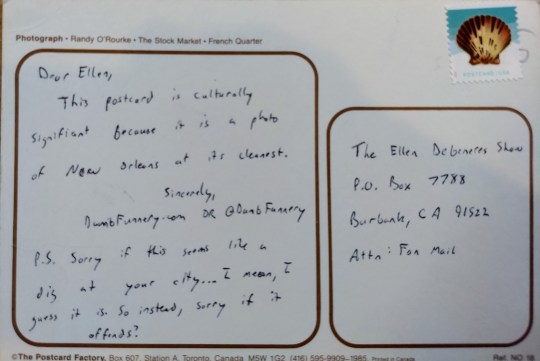 Photograph • Randy O'Rourke • The Stock Market • French Quarter
POSTCARD USA
Dear Ellen,
This postcard is culturally
significant because it is a photo
of New Orleans at its cleanest.
Sincerely,
DumbFunnery.com OR @DumbFunnery
P.S. Sorry if this seems like a
dig at your city... I mean, I
guess it is. So instead, sorry if it
offends?
The Ellen DeGeneres Show
P.O. Box 7788
Burbank, CA 91522
Attn: Fan Mail
©The Postcard Factory, Box 607, Station A, Toronto, Canada M5W 1G2 (416) 595-9909-1985 Printed in Canada
Ref. NO 16